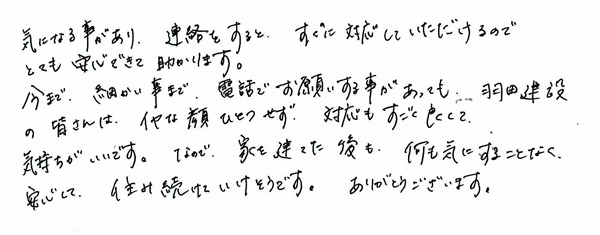 気になる事があり、連絡をすると、すぐに対応していただけるので
とても安心できて助かります。
今まで、細かい事まで、電話でお願いする事があっても、羽田建設
の皆さんは、イヤな顔ひとつせず、対応もすごく良くて、
気持ちがいいです。なので、家を建てた後も、何も気にすることなく、
安心して、住み続けていけそうです。ありがとうございます。